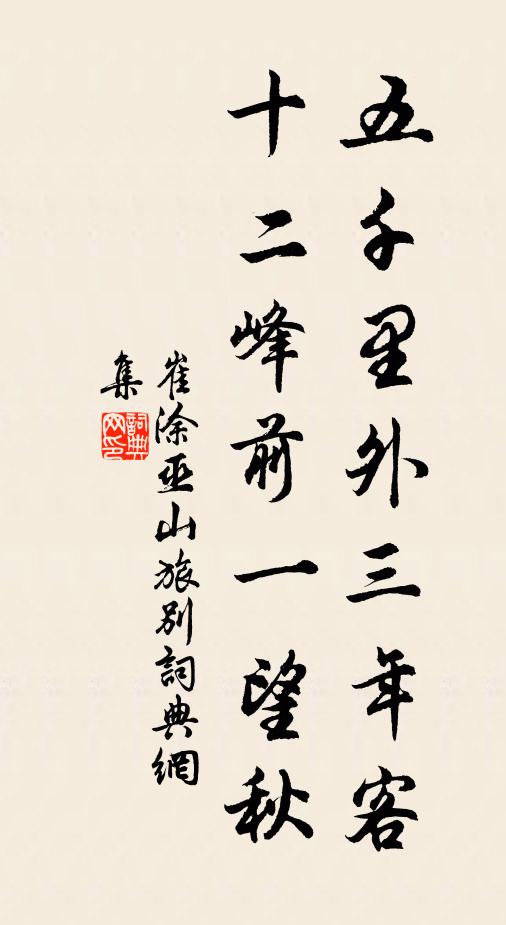 五千里外三年客
十二峰前一望秋
崔涂巫山旅別詞典網
集
詞典
网印